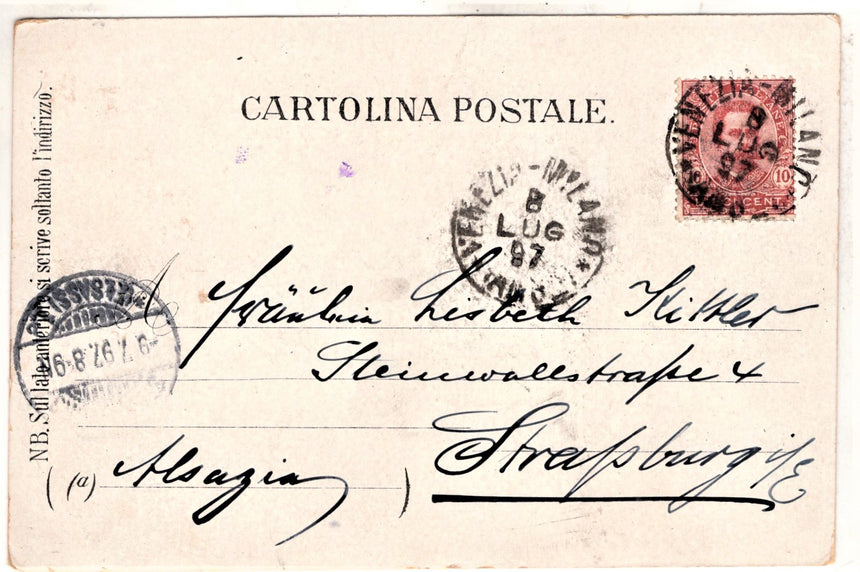 CARTOLINA POSTALE.
VENEZIA-MILANO
8
LUG
97
10
CENT.
VENEZIA-MILANO
8
LUG
97
NB. Sul lato anteriore si scrive soltanto l'indirizzo.
9.7.97. 8-9
Fräulein Lisbeth Kittler
Steinwallstraße 4
Straßburg i/E
(a) Alsazia